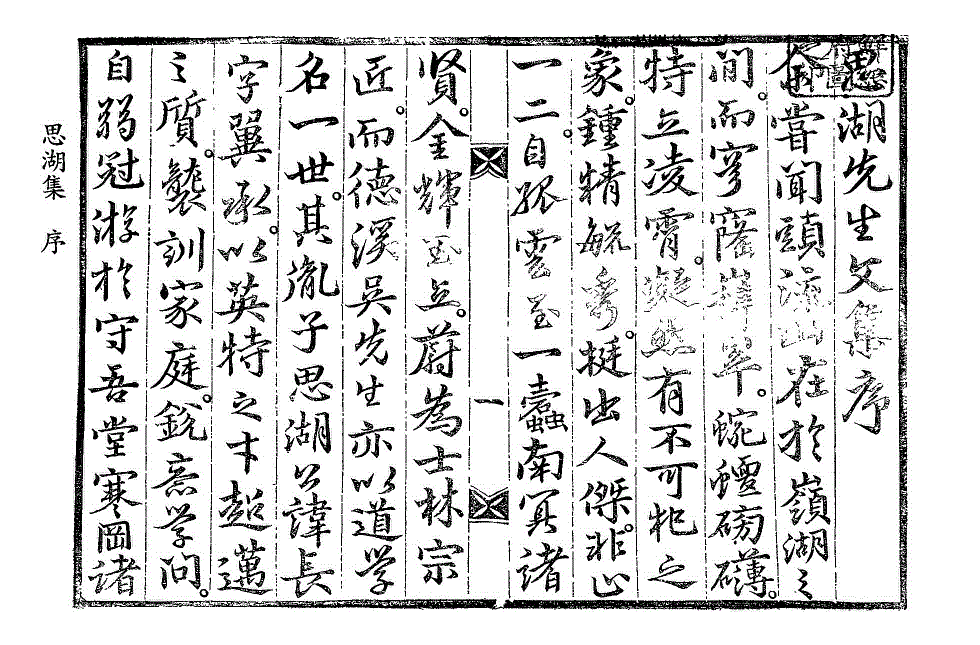 思湖先生文集序
余嘗聞頭流山在於嶺湖之
間。而穹窿崒。蜿蟺磅礴。
特立凌霄。凝然有不可犯之
象。鍾精毓秀。挺出人傑。非止
一二。自孤雲至一蠹南冥諸
一
賢。金輝玉立。蔚為士林宗
匠。而德溪吳先生亦以道学
名一世。其胤子思湖公諱長
字翼承。以英特之才超邁
之質。襲訓家庭。銳意学問。
自弱冠游於守吾堂寒岡諸
思湖集 序